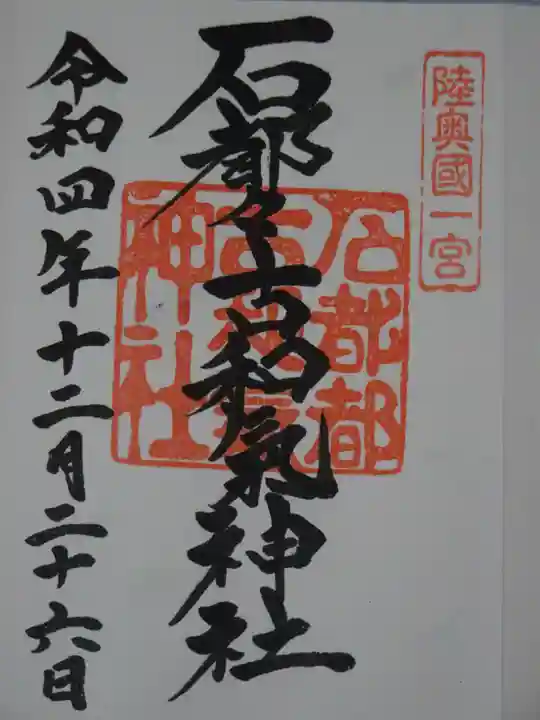 陸奥國一宮
石都々古和氣神社
石都都
古和氣
神社
令和四年十二月二十六日